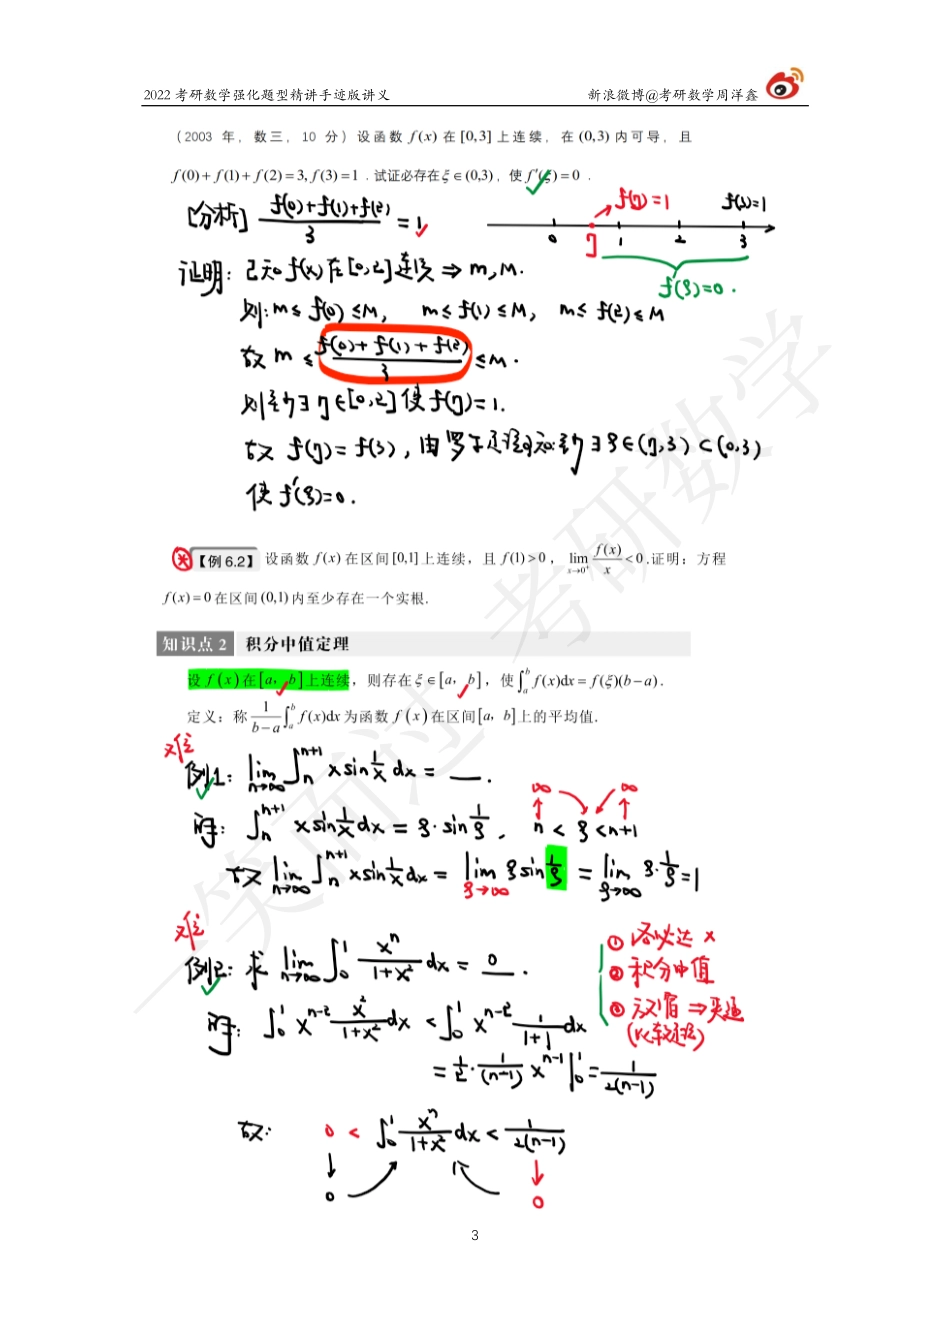 2022 考研数学强化题型精讲手迹版讲义 新浪微博@考研数学周洋鑫
（2003 年，数三，10 分）设函数 f(x) 在 [0,3] 上连续，在 (0,3) 内可导，且
f(0)+f(1)+f(2)=3, f(3)=1．试证必存在 ξ∈(0,3)，使 f′(ξ)=0．
[分析] (f(0)+f(1)+f(2))/3 = 1
f(η)=1 f(3)=1
0 η 1 2 3
f′(ξ)=0.
证明：已知 f(x) 在 [0,2] 连续 ⇒ m, M.
则：m≤f(0)≤M, m≤f(1)≤M, m≤f(2)≤M
故 m ≤ (f(0)+f(1)+f(2))/3 ≤ M.
则至少∃η∈[0,2] 使 f(η)=1.
故 f(η)=f(3)，由罗尔定理可知：至少∃ξ∈(η,3)⊂(0,3)
使 f′(ξ)=0.
【例 6.2】 设函数 f(x) 在区间 [0,1] 上连续，且 f(1)>0，lim_{x→0⁺} f(x)/x <0.证明：方程
f(x)=0 在区间 (0,1) 内至少存在一个实根.
知识点 2 积分中值定理
设 f(x) 在 [a，b] 上连续，则存在 ξ∈[a，b]，使 ∫_a^b f(x)dx = f(ξ)(b−a).
定义：称 1/(b−a) ∫_a^b f(x)dx 为函数 f(x) 在区间 [a，b] 上的平均值.
难
例1：lim_{n→∞} ∫_n^{n+1} x sin(1/x) dx = __.
∞ ∞
解：∫_n^{n+1} x sin(1/x) dx = ξ·sin(1/ξ), n<ξ<n+1
故 lim_{n→∞} ∫_n^{n+1} x sin(1/x) dx = lim_{ξ→∞} ξ sin(1/ξ) = lim_{ξ→∞} ξ·1/ξ = 1
难
例2：求 lim_{n→∞} ∫_0^1 x^n/(1+x²) dx = 0.
① 洛必达 ×
② 积分中值
③ 放缩 ⇒ 夹逼
(比较定理)
解：∫_0^1 x^{n-2} x²/(1+x²) dx < ∫_0^1 x^{n-2} 1/(1+1) dx
= 1/2 · 1/(n-1) x^{n-1} |_0^1 = 1/(2(n-1))
故：0 < ∫_0^1 x^n/(1+x²) dx < 1/(2(n-1))
0 0
一笑而过 考研数学
3